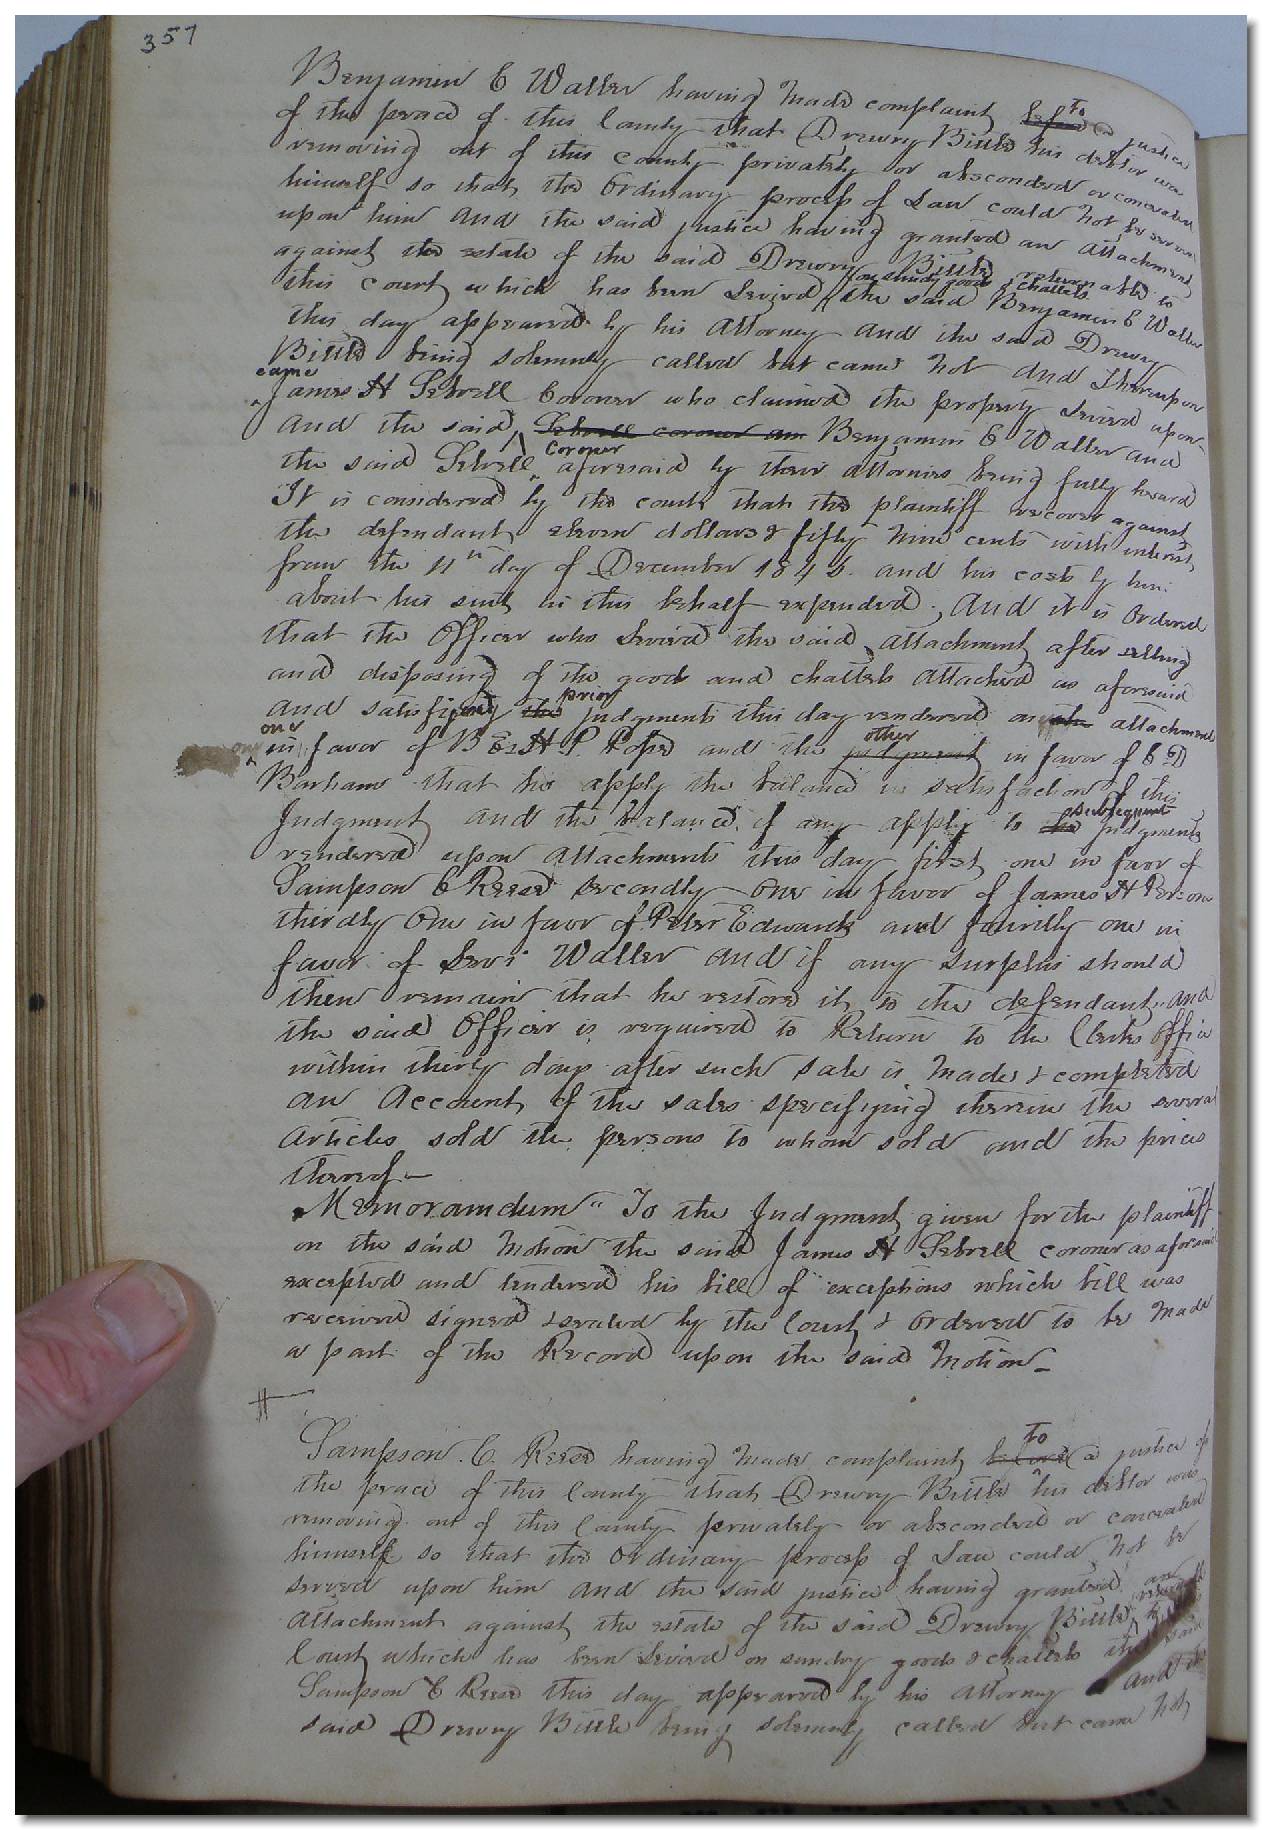 357
Benjamin C Waller having made complaint before To a justice
of the peace of this County that Drewry Bittle his debtor was
removing out of this county privately or absconded or concealed
himself so that the Ordinary process of Law could not be served
upon him And the said justice having granted an attachment
against the estate of the said Drewry Bittle returnable to
this Court which has been Levied on sundry goods & chattels the said Benjamin C Waller
this day appeared by his Attorney And the said Drewry
Bittle being solemnly called but came not And Thereupon
came James H Sebrell Coroner who claimed the property Levied upon
And the said Sebrell coroner an Benjamin C Waller and
the said Sebrell Coroner aforesaid by their attornies being fully heard
It is considered by the court that the plaintiff recover against
the defendant eleven dollars & fifty nine cents with interest
from the 11th day of December 184 and his costs by him
about his suit in this behalf expended. And it is Ordered
that the Officer who Levied the said Attachment after selling
and disposing of the goods and chattels attached as aforesaid
And satisfying the prior judgments this day rendered on attachment
one in favor of B E & H P Pope and the judgment other in favor of C D
Barham that he apply the balance in satisfaction of this
Judgment and the balance if any apply to the subsequent judgments
rendered upon Attachments this day first one in favor of
Sampson C Reese secondly One in favor of James H Persons
thirdly One in favor of Peter Edwards and fourthly one in
favor of Levi Waller And if any surplus should
then remain that he restore it to the defendant and
the said Officer is required to Return to the Clerks Office
within thirty days after such sale is made & completed
an Account of the sales specifying therein the several
Articles sold the persons to whom sold and the prices
thereof—
Memorandum" To the Judgment given for the plaintiff
on the said Motion the said James H Sebrell coroner as aforesaid
excepted and tendered his bill of exceptions which bill was
received signed & sealed by the Court & Ordered to be made
a part of the Record upon the said Motion—
Sampson C. Reese having made complaint before To a justice of
the peace of this County that Drewry Bittle his debtor was
removing out of this County privately or absconded or concealed
himself so that the Ordinary process of Law could not be
served upon him and the said justice having granted an
Attachment against the estate of the said Drewry Bittle returnable to this
Court which has been Levied on sundry goods & chattels the said
Sampson C Reese this day appeared by his attorney and the
said Drewry Bittle being solemnly called but came not